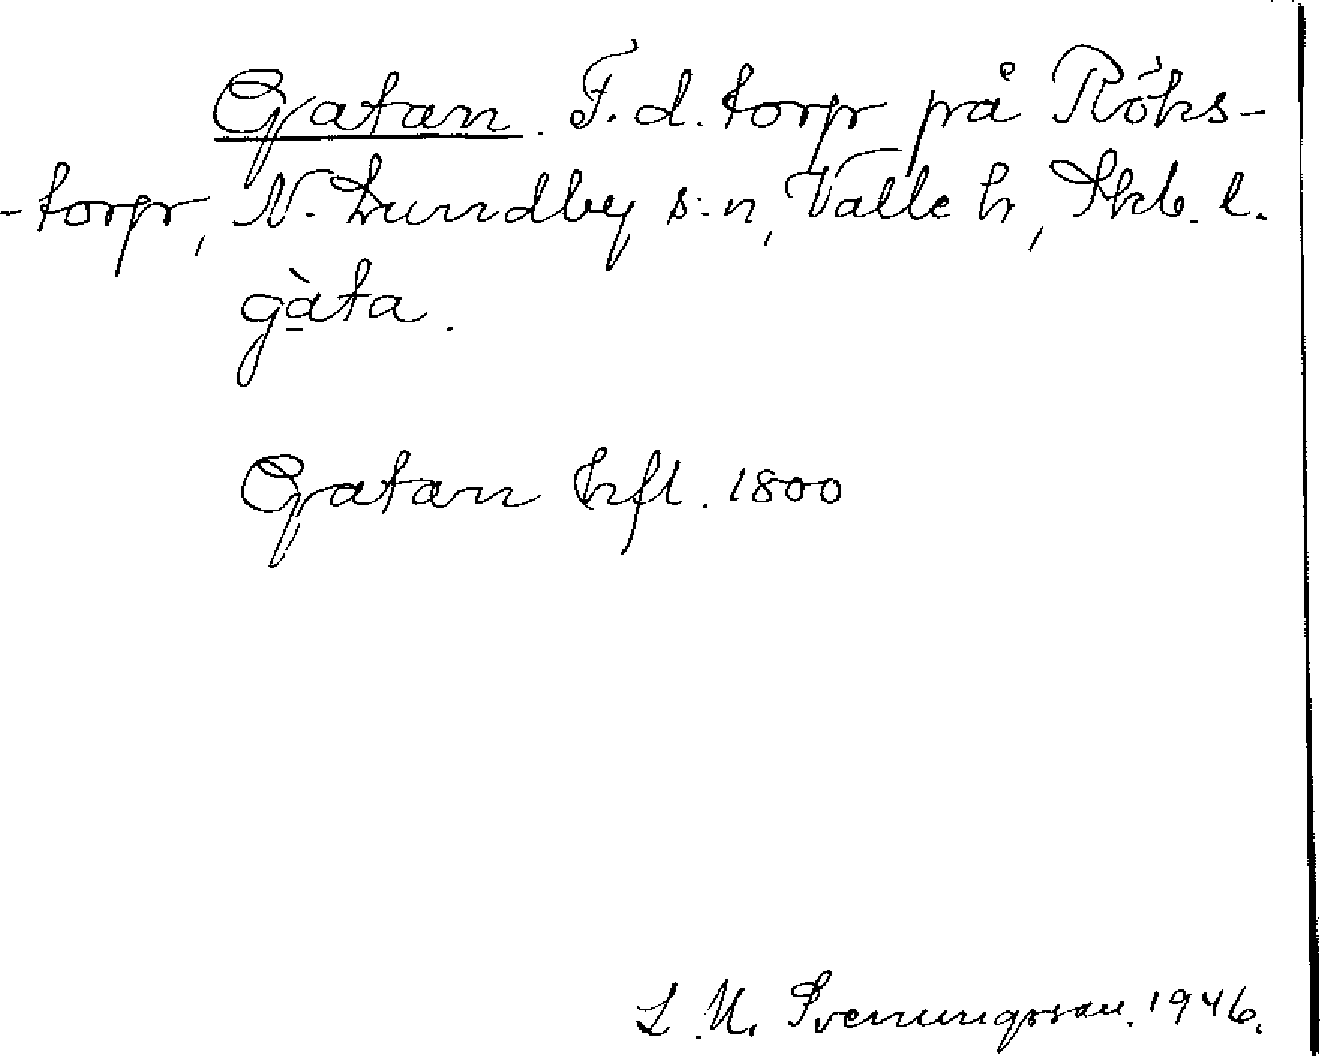 Gatan. F.d. torp på Röks-
-torp, N. Lundby s:n, Valle h, Skb. l.
gàta.
Gatan hfl. 1800
L. M. Svenungsson. 1946.